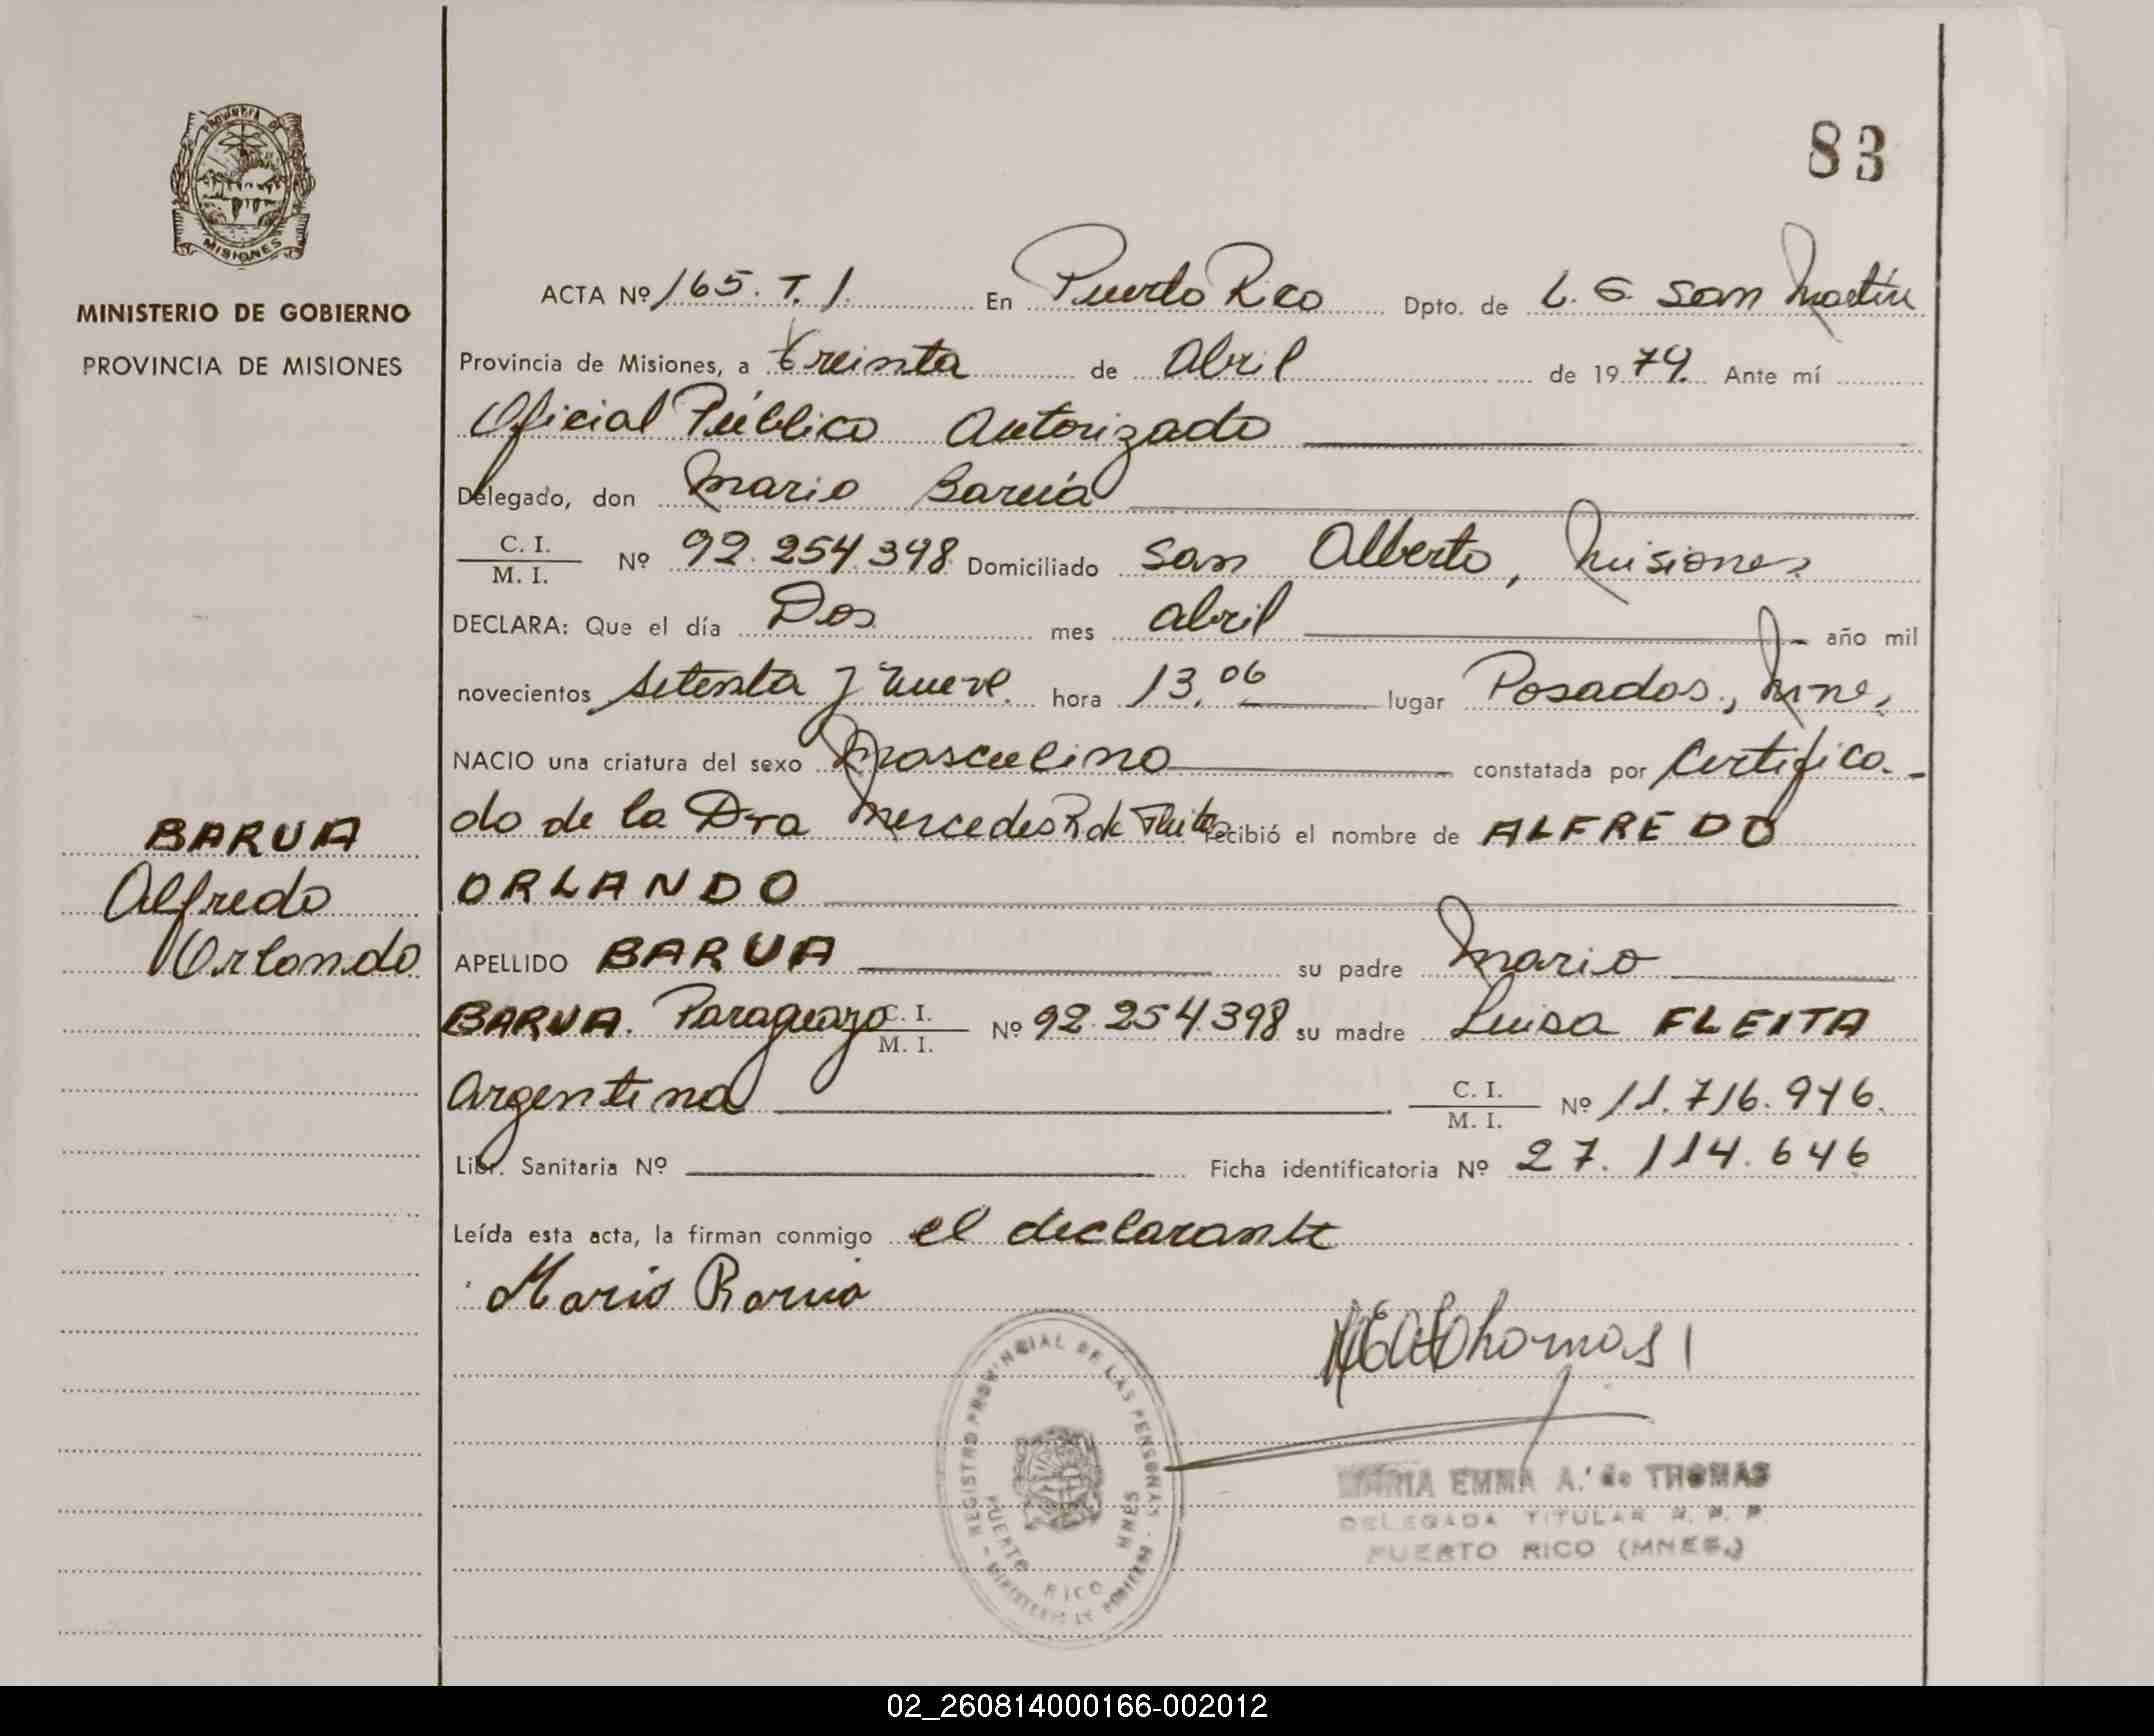 PROVINCIA DE
MISIONES
MINISTERIO DE GOBIERNO
PROVINCIA DE MISIONES
83
ACTA Nº 165. T. 1. En Puerto Rico Dpto. de L. G. San Martín
Provincia de Misiones, a treinta de Abril de 1979. Ante mí
Oficial Público Autorizado
Delegado, don Mario Barúa
C. I.
M. I. Nº 92.254.398 Domiciliado San Alberto, Misiones
DECLARA: Que el día Dos mes abril año mil
novecientos setenta y nueve hora 13,06 lugar Posadas, Mnes.
NACIO una criatura del sexo Masculino constatada por Certifica-
do de la Dra Mercedes R de recibió el nombre de ALFREDO
ORLANDO
BARUA
Alfredo
Orlando
APELLIDO BARUA su padre Mario
BARUA. Paraguayo C. I.
M. I. Nº 92.254.398 su madre Luisa FLEITA
Argentina C. I.
M. I. Nº 11.716.946.
Libr. Sanitaria Nº Ficha identificatoria Nº 27.114.646
Leída esta acta, la firman conmigo el declarante
Mario Barua
REGISTRO PROVINCIAL DE LAS PERSONAS - MINISTERIO DE GOBIERNO -
PUERTO RICO MNES
MARIA EMMA A. de THOMAS
DELEGADA TITULAR R. P. P.
PUERTO RICO (MNES.)
02_260814000166-002012